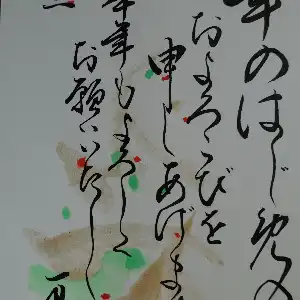 年のはじめの
およろこびを
申しあげます
本年もよろしく
お願いいたし
一月